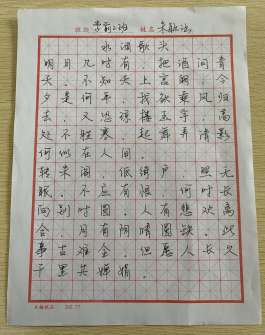 班级 学前2班 姓名
水调歌头
明月几时有,把酒问青
天,不知天上宫阙,今
夕是何年,我欲乘风归
去,又恐琼楼玉宇,高
处不胜寒,起舞弄清影
何似在人间。
转朱阁,低绮户,照无
眠,不应有恨,何时长
向别时圆,人有悲欢离
合,月有阴晴圆缺,此
事古难全,但愿人长久
千里共婵娟。